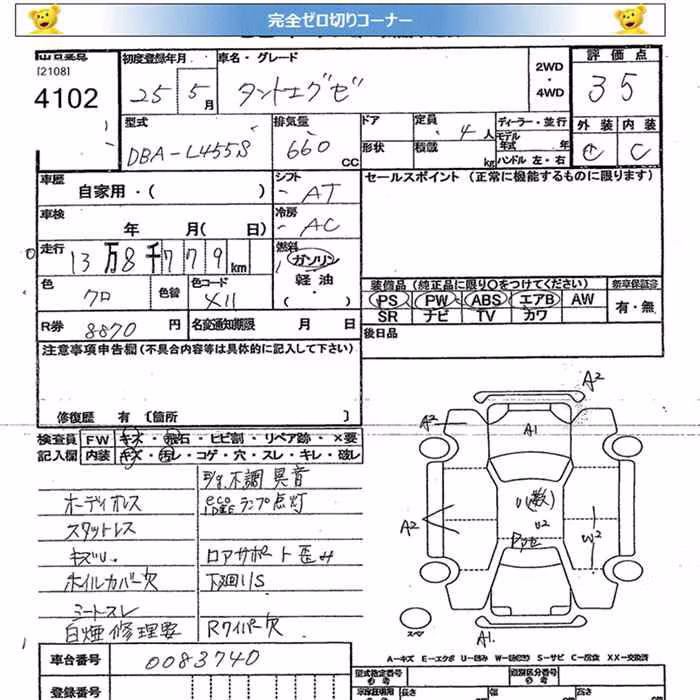 完全ゼロ切りコーナー
[2108]
4102
初度登録年月
25 5月
車名・グレード
タントエグゼ
2WD
・
4WD
評価点
35
型式
DBA-L455S
排気量
660 cc
ドア
形状
定員
4人
積載
kg
ディーラー・並行
モデル年式 年
ハンドル 左・右
外装 内装
C C
車歴
自家用・( )
シフト
AT
セールスポイント (正常に機能するものに限ります)
車検
年 月( 日)
冷房
AC
走行
13万8千779km
燃料
ガソリン
軽油
( )
色
クロ
色替
色コード
X11
装備品(純正品に限り○をつけてください)
PS PW ABS エアB AW
SR ナビ TV カワ
新車保証書
有・無
R券
8870円
名変通知期限 月 日
後日品
注意事項申告欄(不具合内容等は具体的に記入して下さい)
修復歴 有〔箇所 〕
検査員
記入欄
FW キズ・飛石・ヒビ割・リペア跡・×要
内装 キズ・汚レ・コゲ・穴・スレ・キレ・破レ
不調 異音
オーディオレス
eco IDLE ランプ点灯
スタットレス
キズU.
ロアサポート歪み
ホイルカバー欠
下廻りS
シートスレ
白煙 修理要
Rワイパー欠
A2
A2
A1
A2
U(数)
U2
W2
スペア
A1.
A－キズ E－エクボ U－凹み W－波 S－サビ C－腐食 XX－交換済
車台番号
0083740
型式指定番号
類別区分番号
登録番号
長さ
幅
高さ